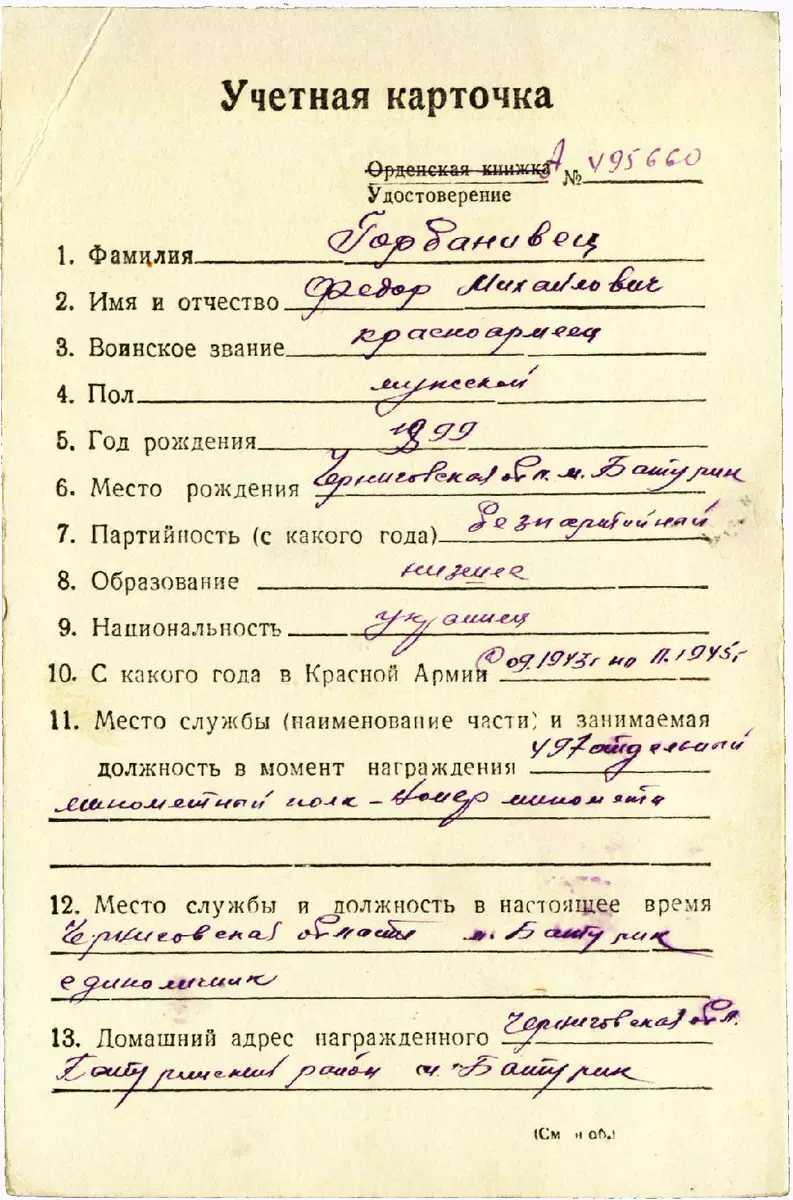 Учетная карточка
Орденская книжка А № 495660
Удостоверение
1. Фамилия Горбанивец
2. Имя и отчество Федор Михайлович
3. Воинское звание красноармеец
4. Пол мужской
5. Год рождения 1899
6. Место рождения Черниговская обл. м. Батурин
7. Партийность (с какого года) безпартийный
8. Образование низшее
9. Национальность украинец
10. С какого года в Красной Армии с 09.1943г по 11.1945г
11. Место службы (наименование части) и занимаемая
должность в момент награждения 497 отдельный
минометный полк – номер миномета
12. Место службы и должность в настоящее время
Черниговская область м. Батурин
единоличник
13. Домашний адрес награжденного Черниговская обл.
Батуринский район м. Батурин
(См н об.)